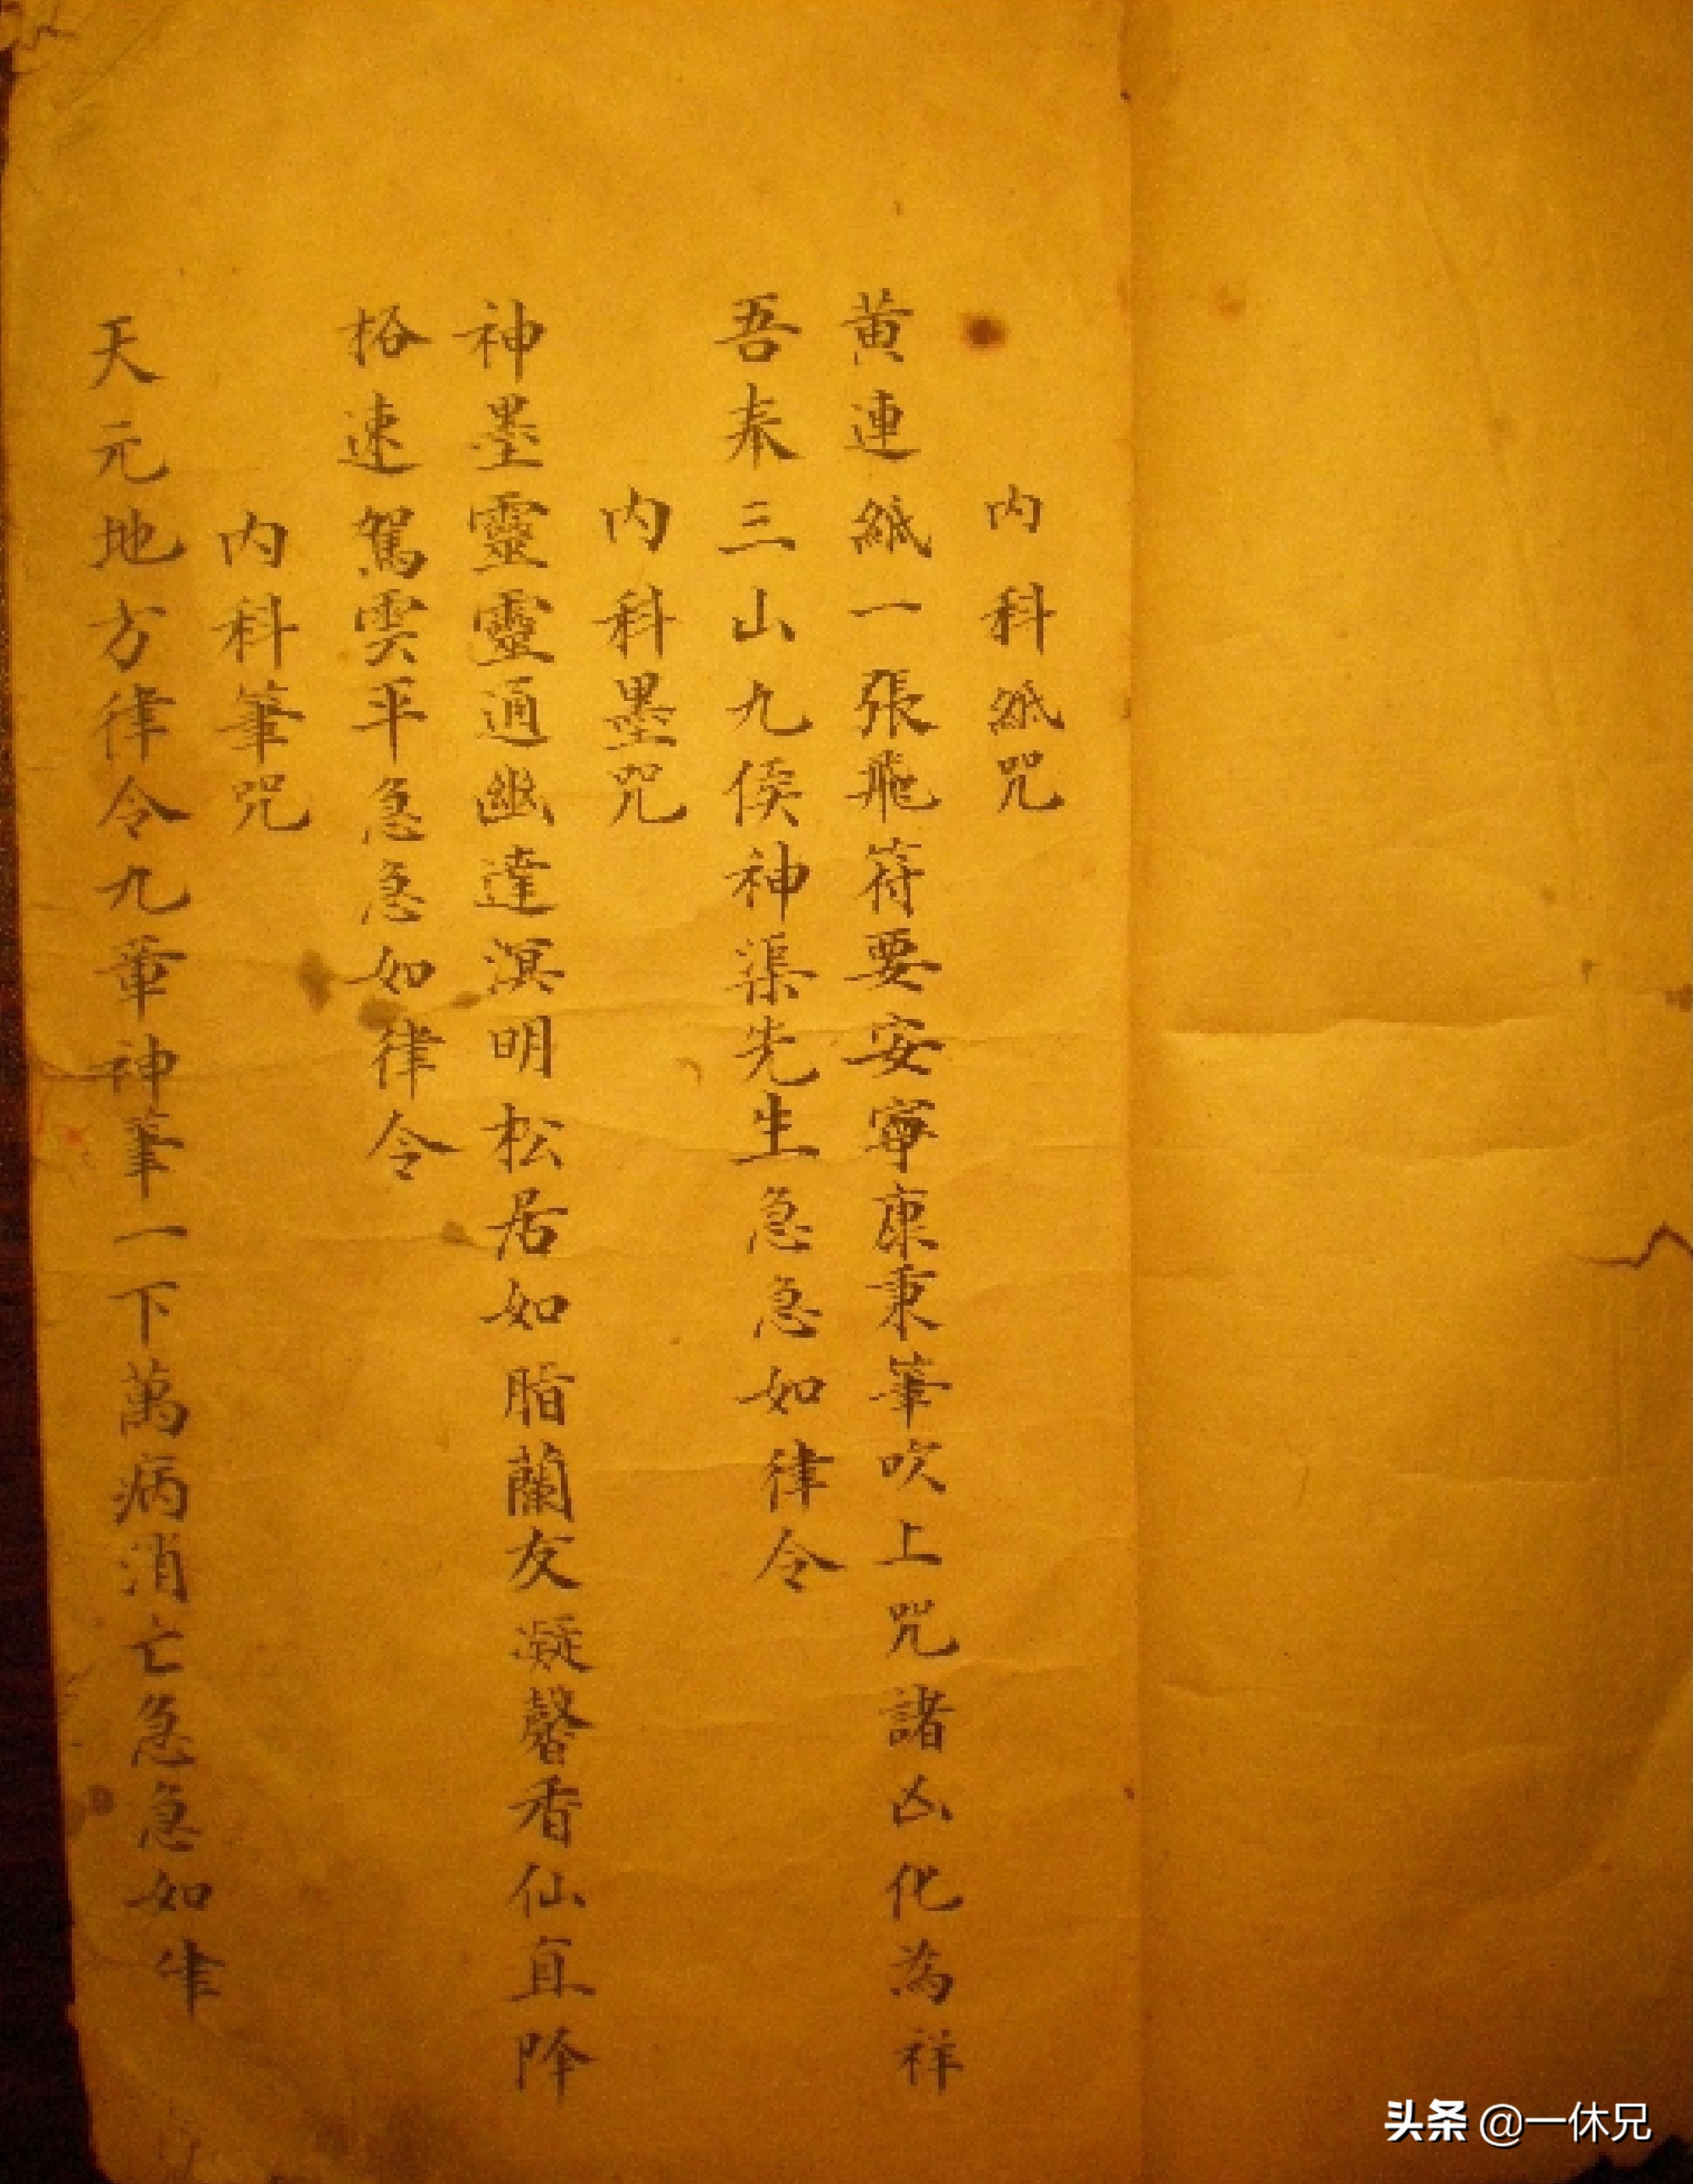 內科紙咒
黄連紙一張飛符要安寧康秉筆吹上咒諸凶化為祥
吾奉三山九侯神渠先生急急如律令
內科墨咒
神墨靈靈通幽達溟明松居如脂蘭友凝馨香仙真降
格速駕雲平急急如律令
內科筆咒
天元地方律令九章神筆一下萬病消亡急急如律
头条 @一休兄